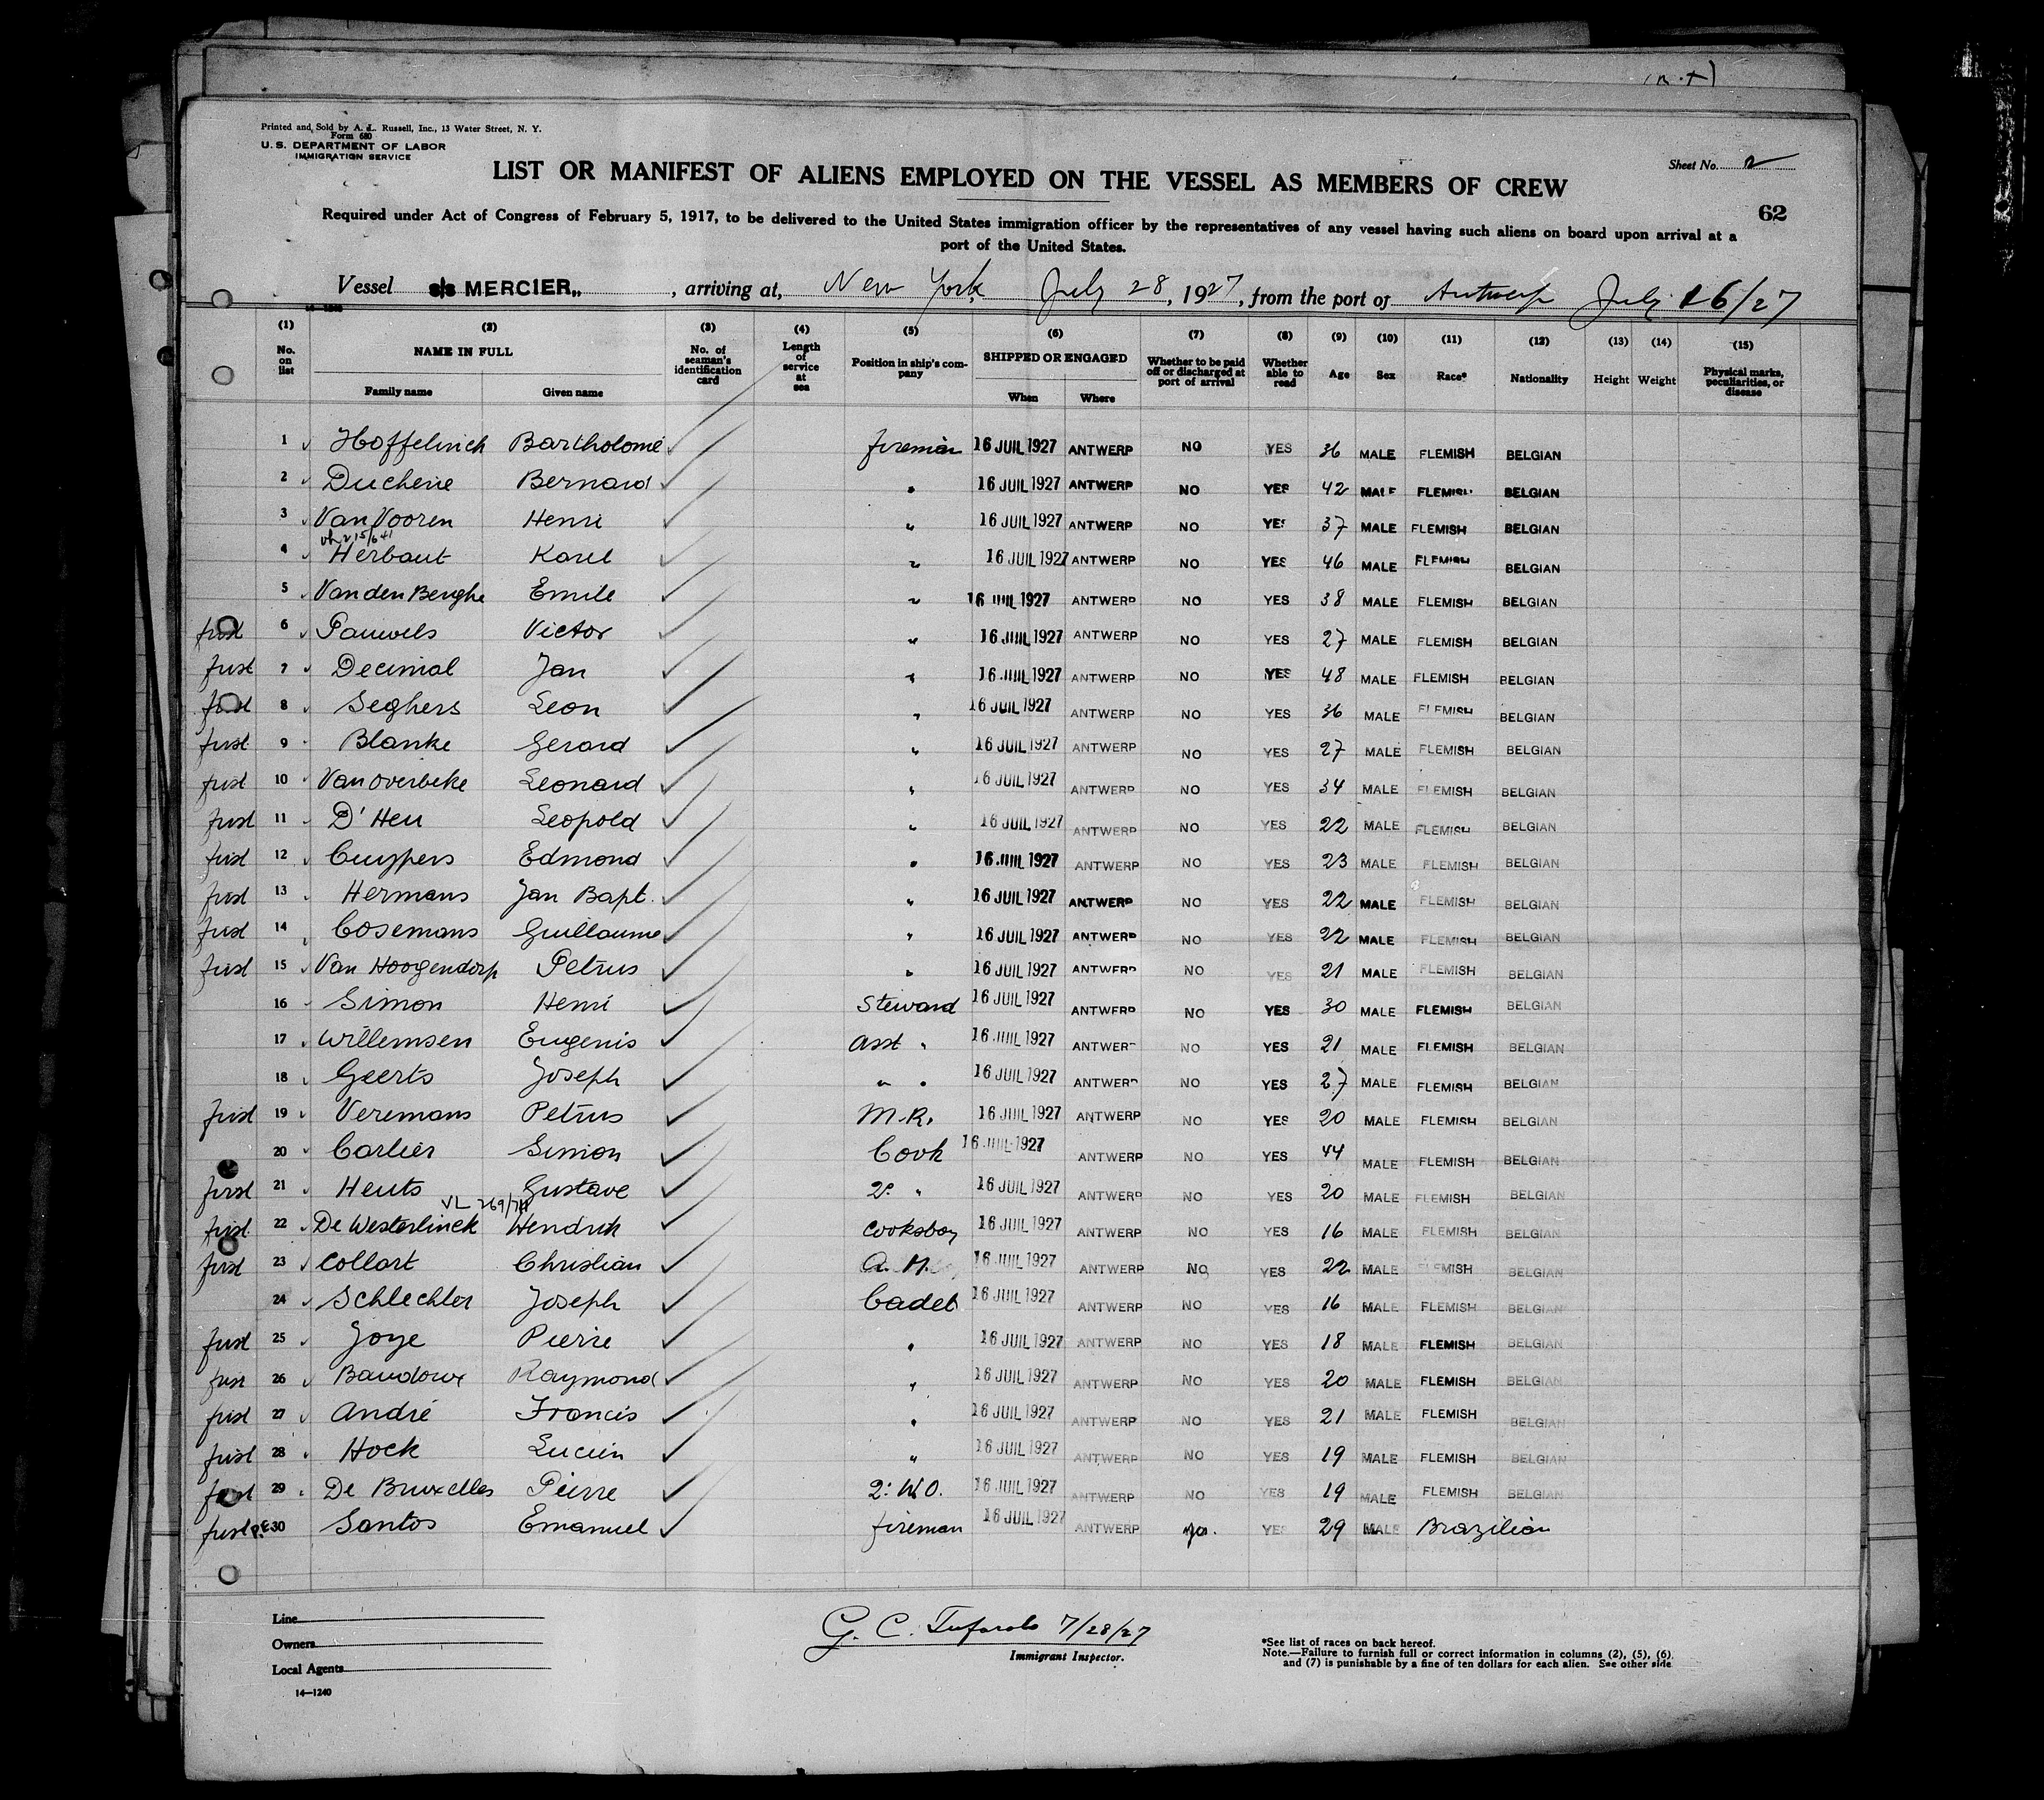 (n.t)
Printed and Sold by A. L. Russell, Inc., 13 Water Street, N. Y.
Form 680
U. S. DEPARTMENT OF LABOR
IMMIGRATION SERVICE
Sheet No. 2
LIST OR MANIFEST OF ALIENS EMPLOYED ON THE VESSEL AS MEMBERS OF CREW
62
Required under Act of Congress of February 5, 1917, to be delivered to the United States immigration officer by the representatives of any vessel having such aliens on board upon arrival at a
port of the United States.
Vessel s/s MERCIER, , arriving at, New York, July 28, 1927, from the port of Antwerp July 16/27
(1) (2) (3) (4) (5) (6) (7) (8) (9) (10) (11) (12) (13) (14) (15)
No. on list NAME IN FULL Family name Given name No. of seaman's identification card Length of service at sea Position in ship's company SHIPPED OR ENGAGED When Where Whether to be paid off or discharged at port of arrival Whether able to read Age Sex Race* Nationality Height Weight Physical marks, peculiarities, or disease
1 Hoffelinck Bartholomé fireman 16 JUIL 1927 ANTWERP NO YES 36 MALE FLEMISH BELGIAN
2 Duchene Bernard " 16 JUIL 1927 ANTWERP NO YES 42 MALE FLEMISH BELGIAN
3 Van Vooren Henri " 16 JUIL 1927 ANTWERP NO YES 37 MALE FLEMISH BELGIAN
4 Herbaut Karel " 16 JUIL 1927 ANTWERP NO YES 46 MALE FLEMISH BELGIAN
5 Van den Berghe Emile " 16 JUIL 1927 ANTWERP NO YES 38 MALE FLEMISH BELGIAN
first 6 Pauwels Victor " 16 JUIL 1927 ANTWERP NO YES 27 MALE FLEMISH BELGIAN
first 7 Decimal Jan " 16 JUIL 1927 ANTWERP NO YES 48 MALE FLEMISH BELGIAN
first 8 Seghers Leon " 16 JUIL 1927 ANTWERP NO YES 36 MALE FLEMISH BELGIAN
first 9 Blanke Gerard " 16 JUIL 1927 ANTWERP NO YES 27 MALE FLEMISH BELGIAN
first 10 Van Overbeke Leonard " 16 JUIL 1927 ANTWERP NO YES 34 MALE FLEMISH BELGIAN
first 11 D'Heu Leopold " 16 JUIL 1927 ANTWERP NO YES 22 MALE FLEMISH BELGIAN
first 12 Cuypers Edmond " 16 JUIL 1927 ANTWERP NO YES 23 MALE FLEMISH BELGIAN
first 13 Hermans Jan Bapt. " 16 JUIL 1927 ANTWERP NO YES 22 MALE FLEMISH BELGIAN
first 14 Cosemans Guillaume " 16 JUIL 1927 ANTWERP NO YES 22 MALE FLEMISH BELGIAN
first 15 Van Hoogendorp Petrus " 16 JUIL 1927 ANTWERP NO YES 21 MALE FLEMISH BELGIAN
16 Simon Henri Steward 16 JUIL 1927 ANTWERP NO YES 30 MALE FLEMISH BELGIAN
17 Willemsen Eugenis asst " 16 JUIL 1927 ANTWERP NO YES 21 MALE FLEMISH BELGIAN
18 Geerts Joseph " " 16 JUIL 1927 ANTWERP NO YES 27 MALE FLEMISH BELGIAN
first 19 Veremans Petrus M.R. 16 JUIL 1927 ANTWERP NO YES 20 MALE FLEMISH BELGIAN
20 Carlier Simon Cook 16 JUIL 1927 ANTWERP NO YES 44 MALE FLEMISH BELGIAN
first 21 Heuts Gustave 2º " 16 JUIL 1927 ANTWERP NO YES 20 MALE FLEMISH BELGIAN
first 22 De Westerlinck Hendrik Cooksboy 16 JUIL 1927 ANTWERP NO YES 16 MALE FLEMISH BELGIAN
first 23 Collart Christian 16 JUIL 1927 ANTWERP NO YES 22 MALE FLEMISH BELGIAN
24 Schlechter Joseph Cadet 16 JUIL 1927 ANTWERP NO YES 16 MALE FLEMISH BELGIAN
first 25 Joye Pierre " 16 JUIL 1927 ANTWERP NO YES 18 MALE FLEMISH BELGIAN
first 26 Baudoux Raymond " 16 JUIL 1927 ANTWERP NO YES 20 MALE FLEMISH BELGIAN
first 27 André Francis " 16 JUIL 1927 ANTWERP NO YES 21 MALE FLEMISH BELGIAN
first 28 Hock Lucien " 16 JUIL 1927 ANTWERP NO YES 19 MALE FLEMISH BELGIAN
first 29 De Bruxelles Pierre 2: W.O. 16 JUIL 1927 ANTWERP NO YES 19 MALE FLEMISH BELGIAN
first P.E 30 Santos Emanuel fireman 16 JUIL 1927 ANTWERP YES 29 MALE Brazilian
Line
Owners
Local Agents
14—1240
G. C. Tufarolo 7/28/27
Immigrant Inspector.
*See list of races on back hereof.
Note.—Failure to furnish full or correct information in columns (2), (5), (6)
and (7) is punishable by a fine of ten dollars for each alien. See other side